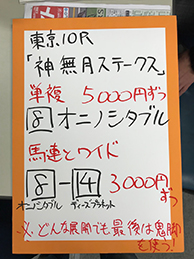 東京10R
「神無月ステークス」
単複 5000円ずつ
8 オニノシタブル
馬連とワイド
8-14 3000円ずつ
オニノシタブル ディーズプラネット
※どんな展開でも最後は鬼脚を使う!